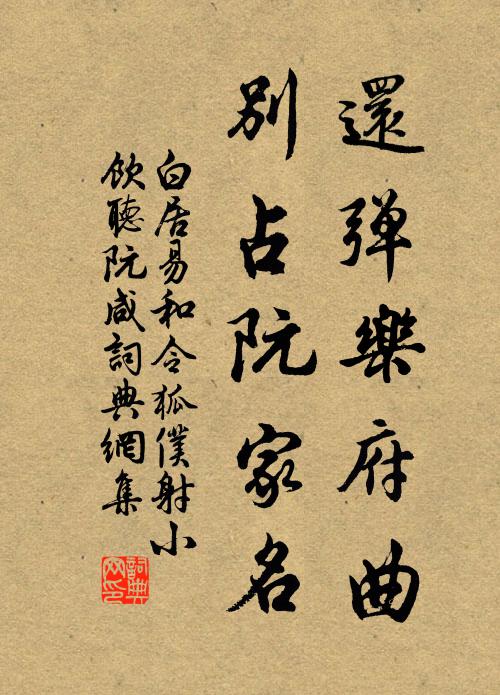 還彈樂府曲
別占阮家名
白居易和令狐僕射小
飲聽阮咸詞典網集
詞典
网印